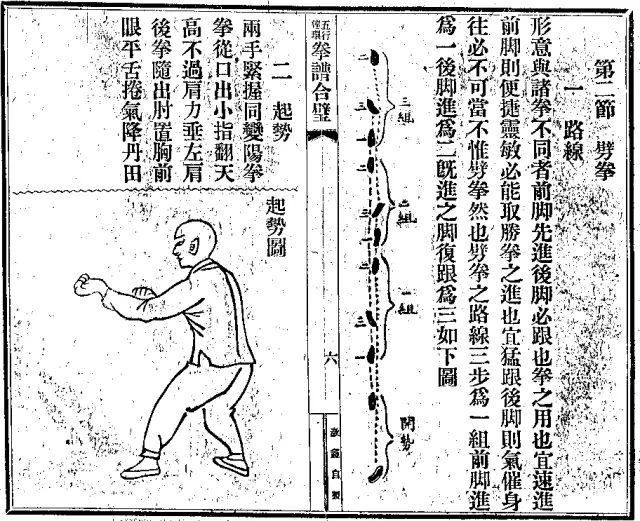 第二節 劈拳
一 路線
形意與諸拳不同者前脚先進後脚必跟也拳之用也宜速進
前脚則便捷靈敏必能取勝拳之進也宜猛跟後脚則氣催身
往必不可當不惟劈拳然也劈拳之路線三步為一組前脚進
為一後脚進為二旣進之脚復跟為三如下圖
三組
二組
一組
開勢
二
三
一
二
三
一
二
三
一
五行連環拳譜合璧
六
二 起勢
兩手緊握同變陽拳
拳從口出小指翻天
高不過肩力垂左肩
後拳隨出肘置胸前
眼平舌捲氣降丹田
起勢圖